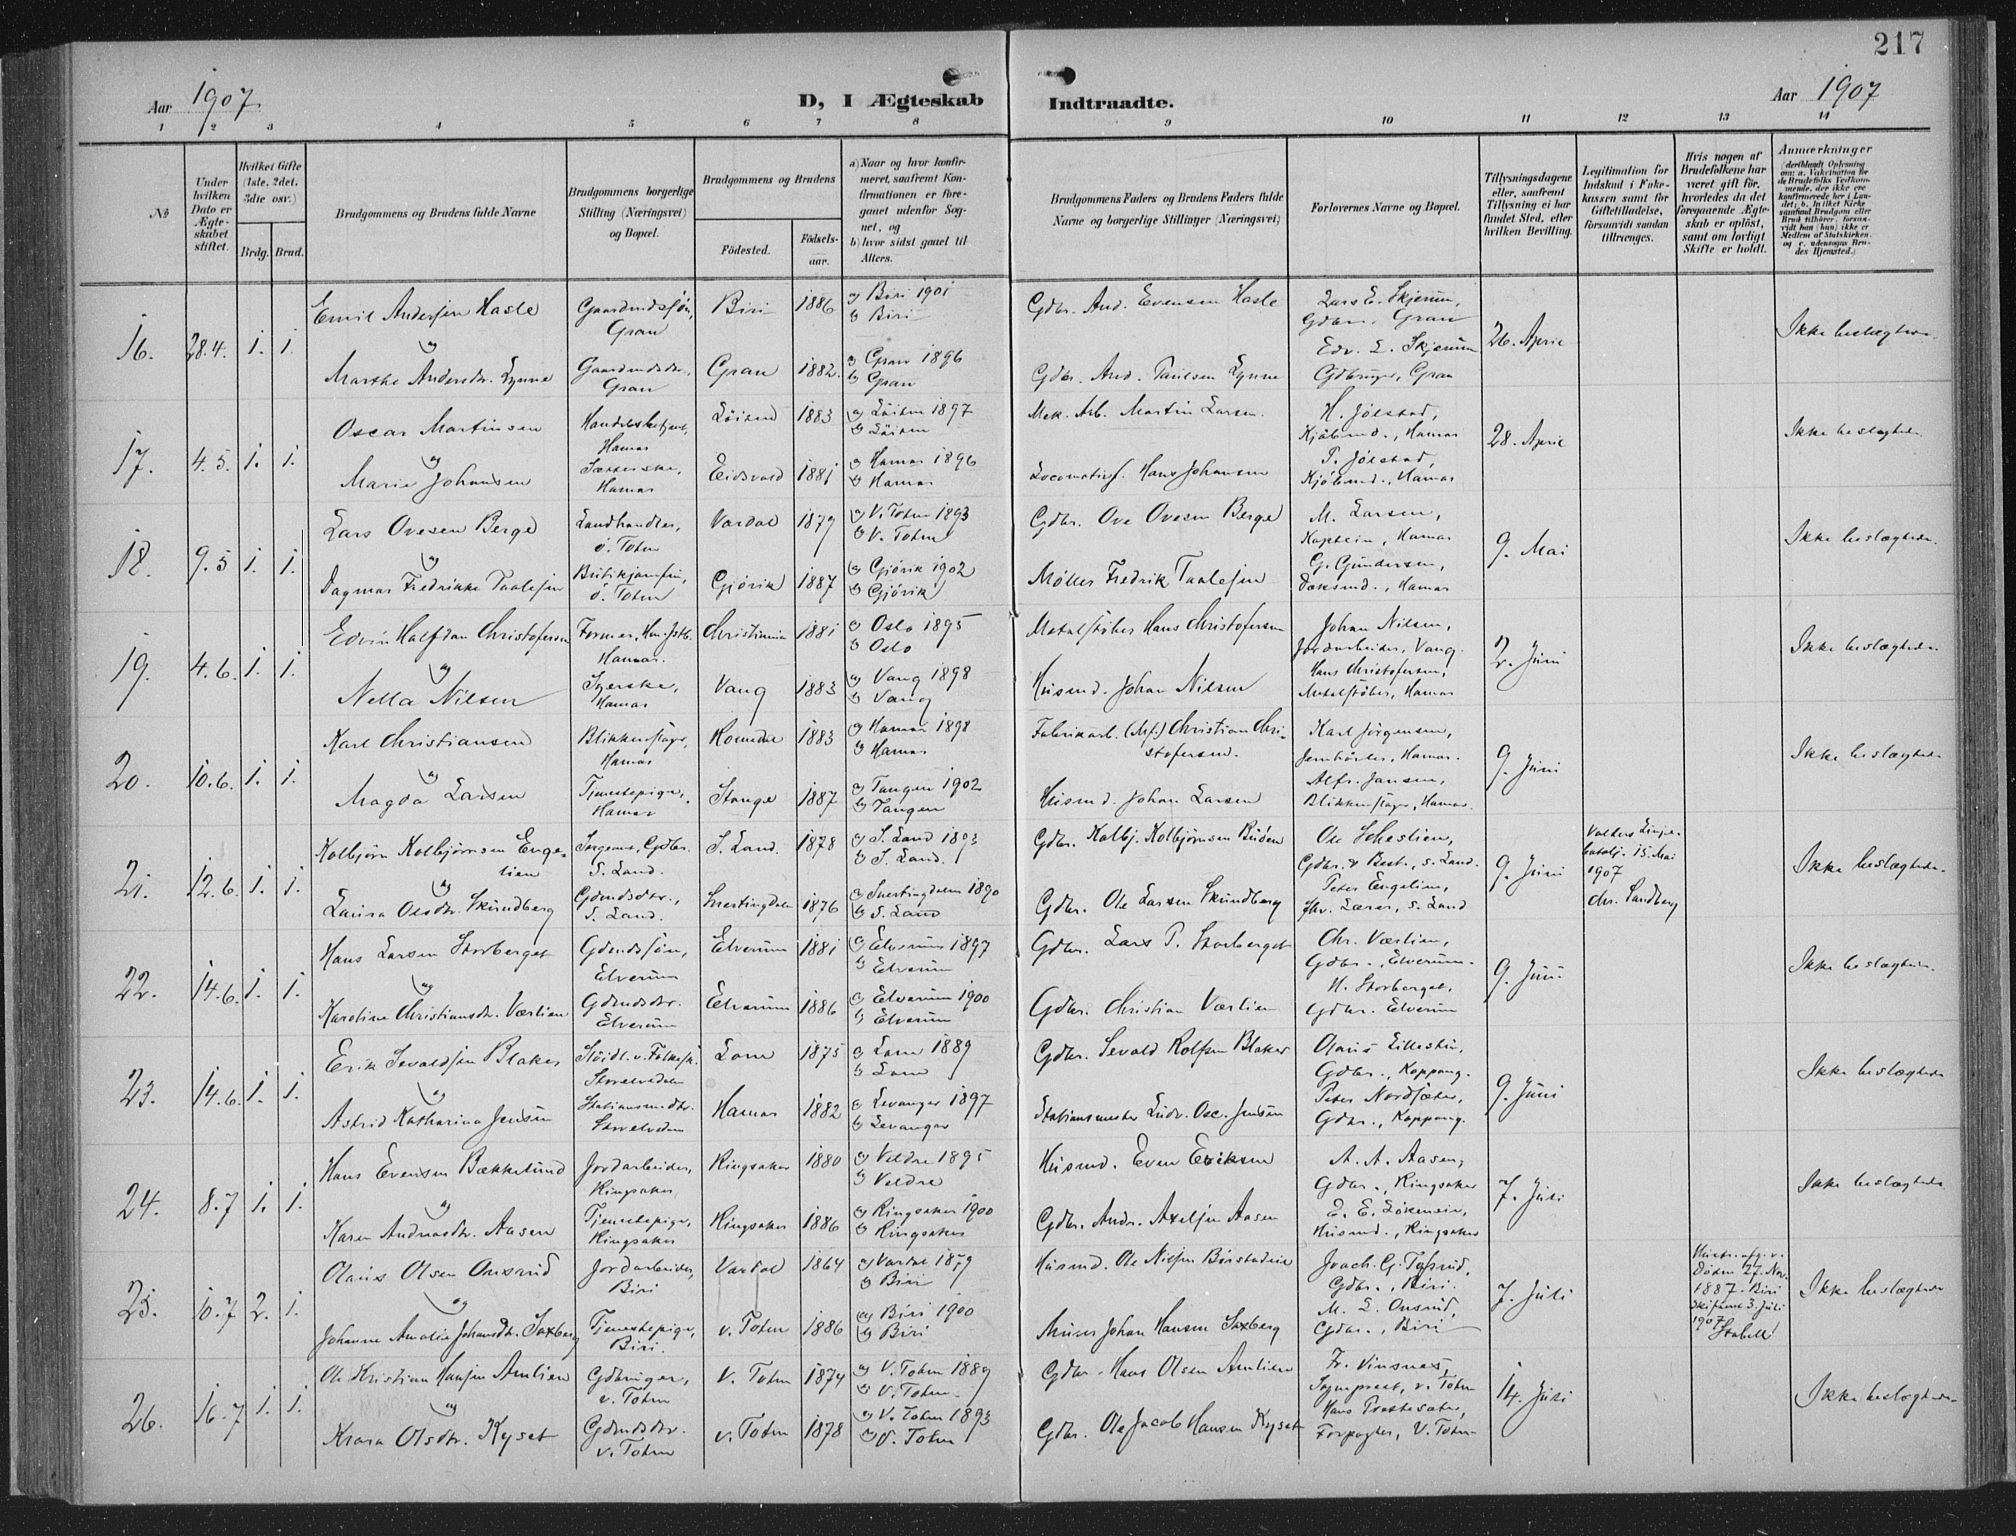 217
Aar 1907
D, I Ægteskab Indtraadte.
Aar 1907
1 2 3 4 5 6 7 8 9 10 11 12 13 14
№
Under hvilken Dato er Ægteskabet stiftet.
Hvilket Gifte (1ste, 2det, 3die osv.)
Brdg. Brud.
Brudgommens og Brudens fulde Navne
Brudgommens borgerlige Stilling (Næringsvei) og Bopæl.
Brudgommens og Brudens
Fødested.
Fødselsaar.
a) Naar og hvor konfirmeret, saafremt Konfirmationen er foregaaet udenfor Sognet, og
b) hvor sidst gaaet til Alters.
Brudgommens Faders og Brudens Faders fulde Navne og borgerlige Stillinger (Næringsvei)
Forlovernes Navne og Bopæl.
Tillysningsdagene eller, saafremt Tillysning ei har fundet Sted, efter hvilken Bevilling.
Legitimation for Indskud i Enkekassen samt for Giftetilladelse, forsaavidt saadan tiltrænges.
Hvis nogen af Brudefolkene har været gift før, hvorledes da det foregaaende Ægteskab er opløst, samt om lovligt Skifte er holdt.
Anmærkninger
16. 28.4. 1. 1.
Emil Andersen Hasle
Gaardmdssøn, Gran
Biri 1886
a) Biri 1901
b) Biri
Gdbr. And. Evensen Hasle
Lars E. Skjerum,
Gdbr. Gran
26. April
Ikke beslægtede.
og
Marthe Andersdtr. Lynne
Gaardmdsdtr., Gran
Gran 1882.
a) Gran 1896
b) Gran
Gdbr. And. Paulsen Lynne
Edv. L. Skjerum
Gdbruger, Gran
17. 4.5. 1. 1.
Oscar Martinsen
Handelsbetjent, Hamar
Løiten 1883
a) Løiten 1897
b) Løiten
Mek. Arb. Martin Larsen.
H. Jølstad,
Kjøbmd., Hamar
28. April
Ikke beslægtede.
og
Marie Johansen
Hamar
Eidsvold 1881
a) Hamar 1896
b) Hamar
Locomotivf. Hans Johansen
P. Jølstad,
Kjøbmd., Hamar
18. 9.5 1. 1.
Lars Ovesen Berge
Landhandler, ø. Toten
Vardal 1879
a) V. Toten 1893
b) V. Toten
Gdbr. Ove Ovesen Berge
M. Larsen,
Kaptein, Hamar
9. Mai
Ikke beslægtede.
og
Dagmar Fredrikke Paalesen
Butikjomfru, ø. Toten
Gjøvik 1887
a) Gjøvik 1902
b) Gjøvik
Møller Fredrik Paalesen
G. Gundersen,
Hamar
19. 4.6. 1. 1.
Edvin Halfdan Christofersen
Former, Hamar.
Christiania 1881
a) Oslo 1895
b) Oslo
Metalstøber Hans Christofersen
Johan Nilsen,
Jordarbeider, Vang.
2. Juni
Ikke beslægtede.
og
Nella Nilsen
Syerske, Hamar
Vang 1883
a) Vang 1898
b) Vang
Husmd. Johan Nilsen
Hans Christofersen,
Metalstøber, Hamar
20. 10.6. 1. 1.
Karl Christiansen
Blikkenslager, Hamar
Romedal 1883
a) Hamar 1898
b) Hamar
Fabrikarb. Christian Christofersen.
Karl Jørgensen,
Hamar.
9. Juni
Ikke beslægtede
og
Magda Larsen
Tjenestepige, Hamar
Stange 1887
a) Tangen 1902
b) Tangen
Husmd. Johan Larsen
Alfr. Jansen,
Blikkenslager, Hamar.
21. 12.6. 1. 1.
Kolbjørn Kolbjørnsen Engelien
Gdbr. S. Land.
S. Land. 1878
a) S. Land 1893
b) S. Land.
Gdbr. Kolbj. Kolbjørnsen Ruden
S. Land.
9. Juni
15. Mai 1907
Chr. Sandberg
Ikke beslægtede.
og
Laura Olsdtr. Skundberg
Gdmdsdtr., S. Land.
Snertingdalen 1876
a) Snertingdalen 1890
b) S. Land
Gdbr. Ole Larsen Skundberg
Peter Engelien,
fhv. Lærer, S. Land
22. 14.6. 1. 1.
Hans Larsen Storberget
Gdmdssøn, Elverum
Elverum 1881
a) Elverum 1897
b) Elverum
Gdbr. Lars P. Storberget
Chr. Værlien,
Gdbr., Elverum.
9. Juni
Ikke beslægtede.
og
Karoline Christiansdtr. Værlien
Gdmdsdtr. Elverum
Elverum 1886
a) Elverum 1900
b) Elverum
Gdbr. Christian Værlien
H. Storberget,
Gdbr. Elverum
23. 14.6. 1. 1.
Erik Sevaldsen Blaker
Storelvedalen
Lom 1875
a) Lom 1889
b) Lom
Gdbr. Sevald Rolfsen Blaker
Olaus Lillestu,
Gdbr., Koppang.
9. Juni
Ikke beslægtede
og
Astrid Katharina Jensen
Stationsmdtr. Storelvedalen
Hamar 1882
a) Levanger 1897
b) Levanger
Stationsmester Ludv. Osc. Jensen
Peter Nordsæter,
Gdbr., Koppang.
24. 8.7 1. 1.
Hans Evensen Bækkelund
Jordarbeider, Ringsaker,
Ringsaker 1880
a) Veldre 1895
b) Veldre
Husmd. Even Eriksen
A. A. Aasen,
Gdbr., Ringsaker
7. Juli
Ikke beslægtede
og
Karen Andreasdtr. Aasen
Tjenestepige, Ringsaker
Ringsaker 1886
a) Ringsaker 1900
b) Ringsaker
Gdbr. Andr. Axelsen Aasen
Husmd., Ringsaker
25. 10.7 2. 1.
Olaus Olsen Onsrud
Jordarbeider, Biri
Vardal 1864
a) Vardal 1879
b) Biri
Husmd. Ole Nilsen
Gdbr., Biri.
7. Juli
Døden 27. Nov. 1887. Biri
3. Juli 1907
Ikke beslægtede
og
Johanne Amalie Johansdtr. Saxberg
Tjenestepige, Biri.
v. Toten 1886
a) Biri 1900
b) Biri
Murer Johan Hansen Saxberg
M. L. Onsrud,
Gdbr., Biri
26. 16.7 1. 1.
Ole Kristian Hansen Amlien
Gdbruger, v. Toten
V. Toten 1874
a) V. Toten 1889
b) V. Toten
Gdbr. Hans Olsen Amlien
Fr. Vinsnes,
Sogneprest, v. Toten
14. Juli
Ikke beslægtede.
og
Klara Olsdtr. Kyset
Gdmdsdtr. v. Toten
v. Toten 1878
a) V. Toten 1893
b) V. Toten
Gdbr. Ole Jacob Hansen Kyset
Hans Prestesæter,
Forpagter, V. Toten